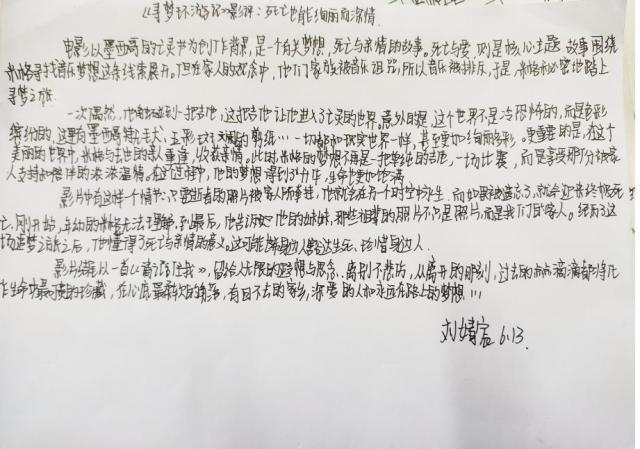 《寻梦环游记》影评：死亡也能绚丽而深情
电影以墨西哥的亡灵节为创作背景，是一个有关梦想，死亡与亲情的故事。死亡与爱，则是核心主题，故事围绕
米格寻找音乐梦想这条线索展开。但在家人的观念中，他们家族被音乐诅咒，所以音乐被排斥，于是，米格秘密地踏上
寻梦之旅。
一次偶然，他触碰到一把吉他，这把吉他让他进入了亡灵的世界。意外的是，这个世界不是冷恐怖的，而是多彩
缤纷的，这里有墨西哥无毛犬、五彩的剪纸…一切都和现实世界一样，甚至更加绚丽多彩。更重要的是，在这个
美丽的世界中，米格与去世的亲人重逢，收获亲情。此时米格的梦想不再是一把单纯的吉他，一场比赛，而是享受那份被家
人支持和陪伴的浓浓温情。在这过程中，他的梦想得到了升华，生命更加饱满。
影片中有这样一个情节：只要逝者的照片被家人所奉进，他就会在另一个时空中永生，而如果被遗忘了，就会迎来终极死
亡。刚开始，年幼的米格无法理解，到最后，他告诉他的妹妹，那些祖辈的照片不只是照片，而是我们的家人。经历了这
场追梦之旅之后，他懂得了死亡与亲情的意义。这可能就是人豁达生死，珍惜身边人。
影片结尾以一首《请记住我》，留给人无限的遐想与思念。离别不悲伤，从离开的那刻，过去的点滴都将化
作生命中最可贵的珍藏，在心底最柔软的角落，有回不去的家乡，深爱的人和永远在路上的梦想…
刘婧宸 6.13.